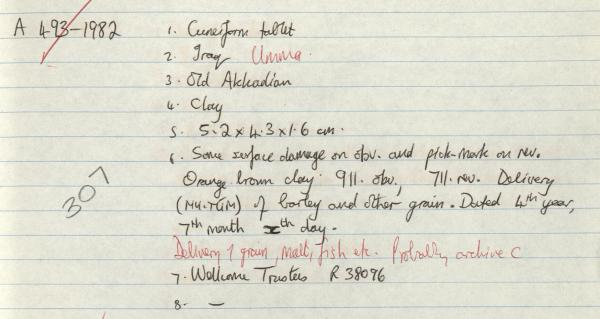 A 493-1982 1. Cuneiform tablet
2. Iraq Umma.
3. Old Akkadian
4. Clay
5. 5.2 x 4.3 x 1.6 cm.
6. Some surface damage on obv. and pick-mark on rev.
Orange brown clay. 9ll. obv., 7ll. rev. Delivery
307
(MU.TÚM) of barley and other grain. Dated 4th year,
7th month th day.
Delivery of grain, malt, fish etc. Probably archive C
7. Wellcome Trustees R 38096
8. —